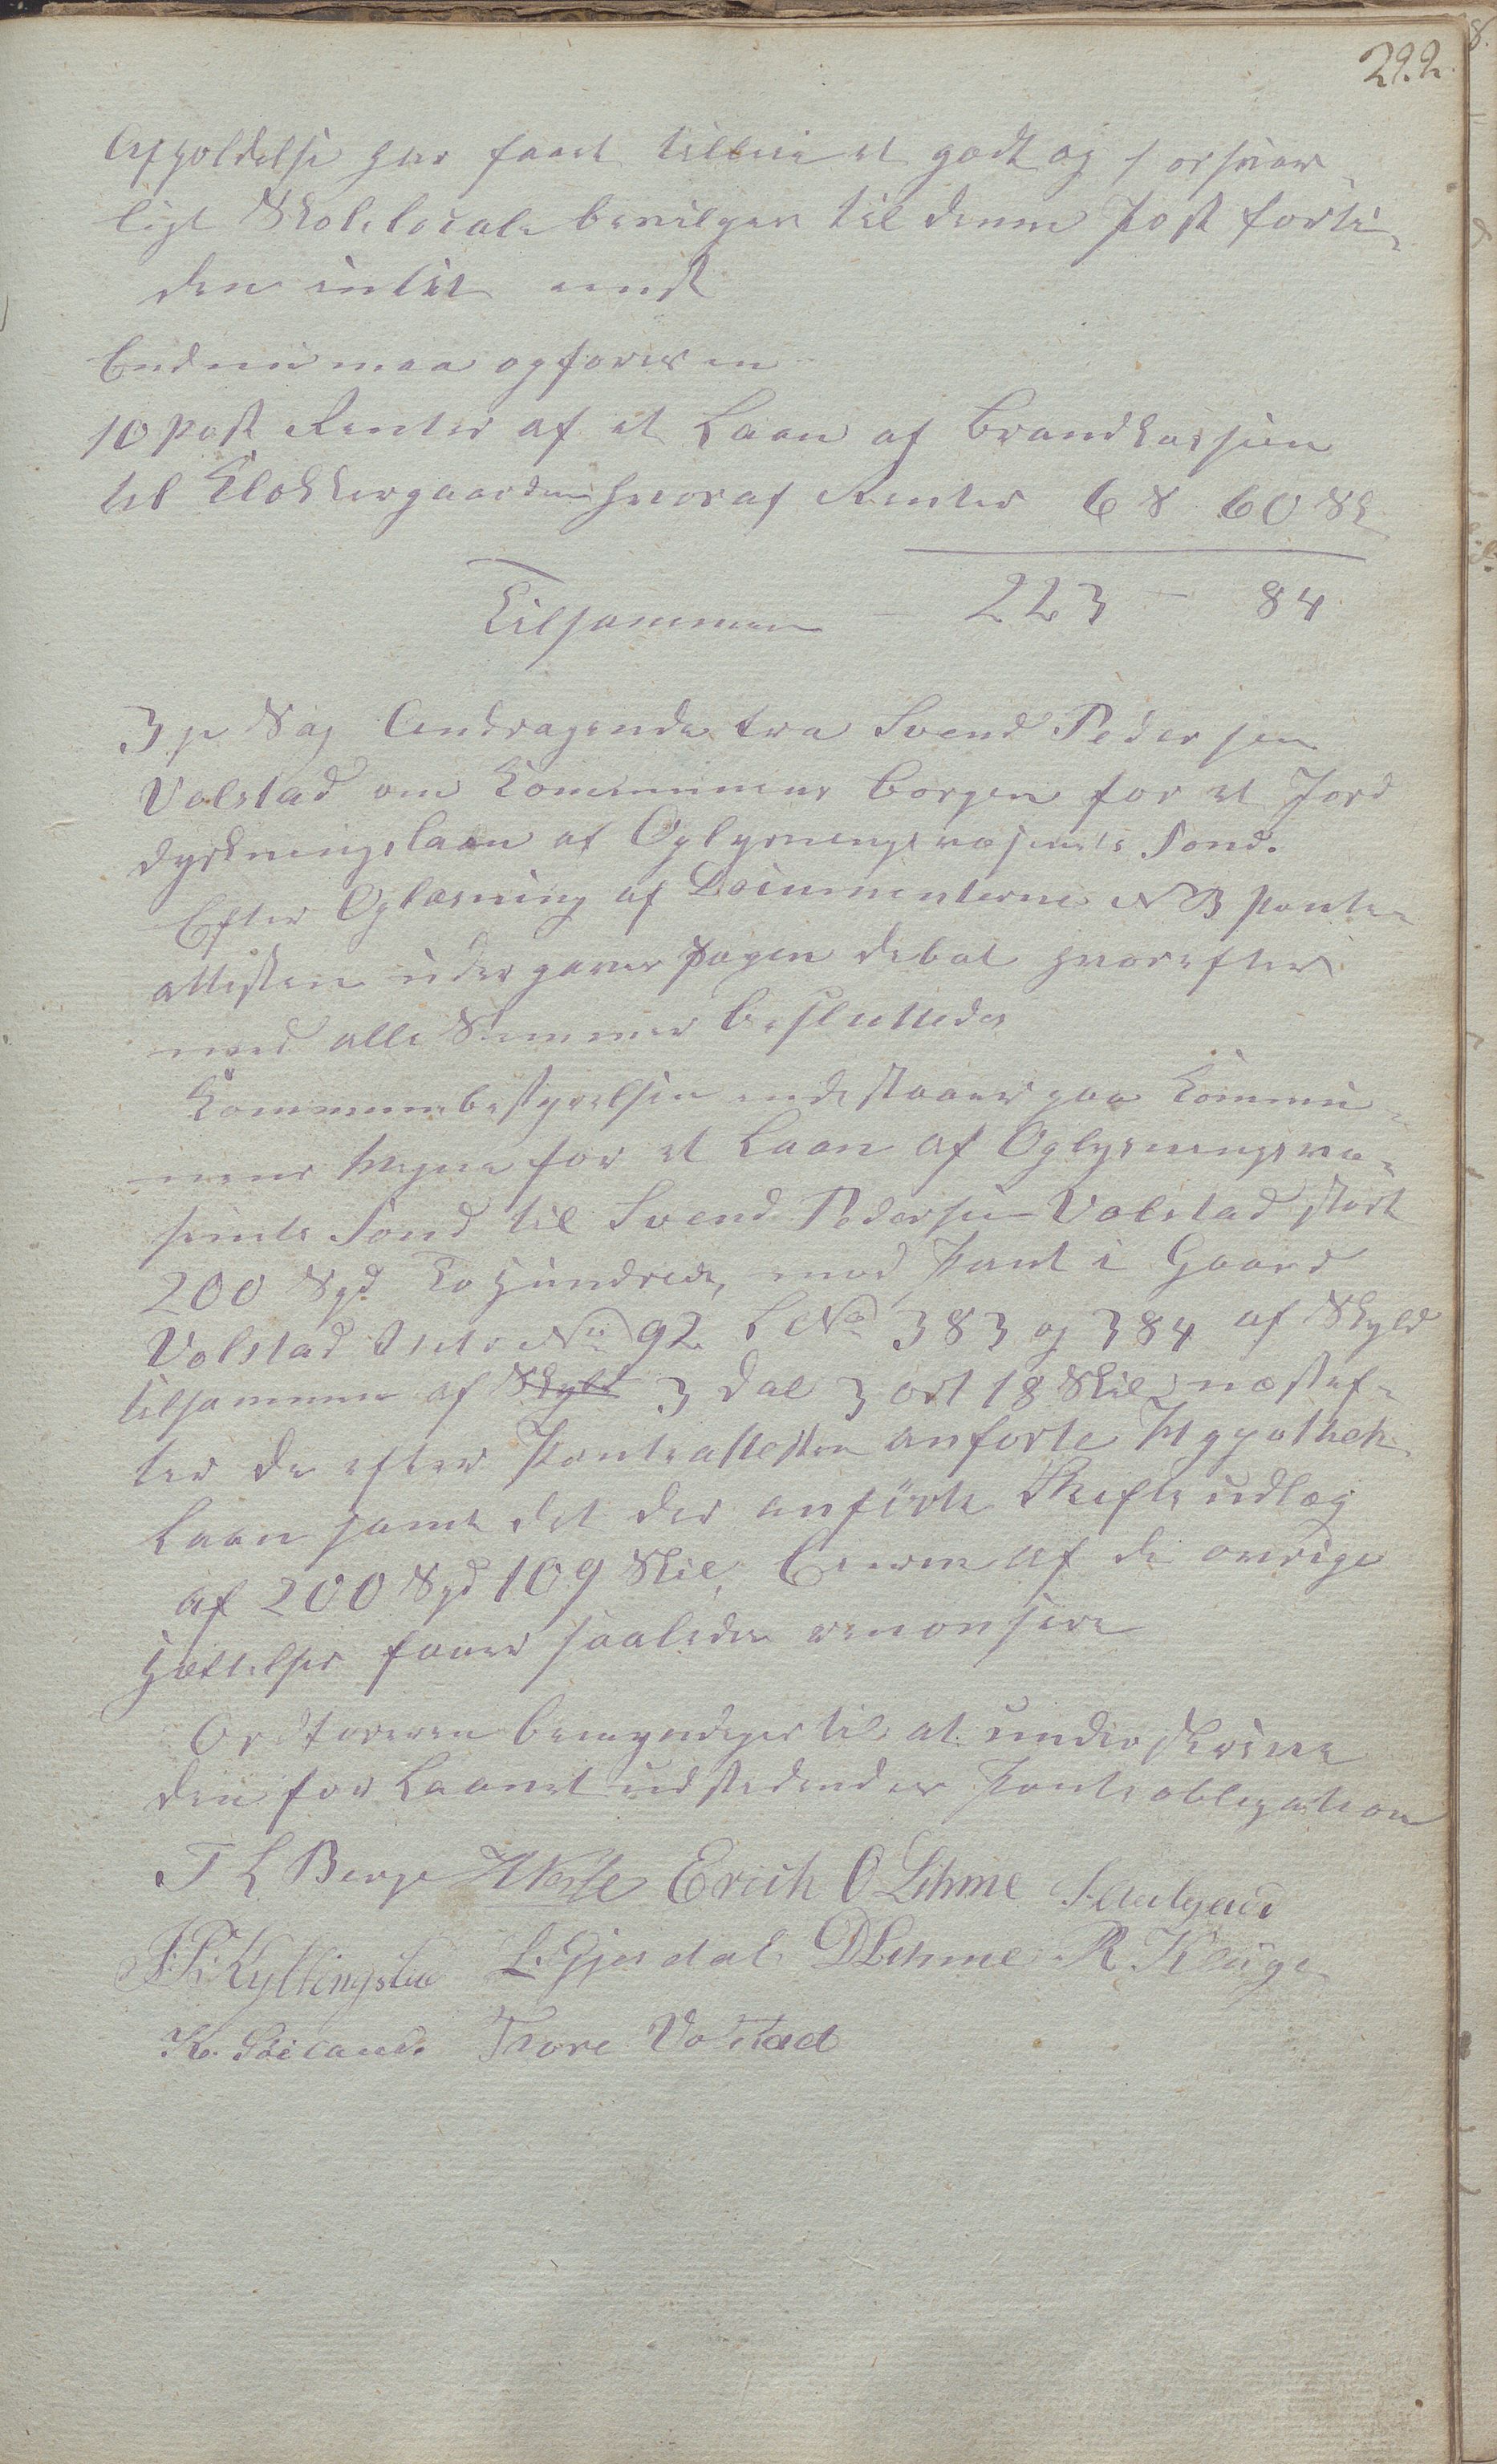 292.
Afholdelse har faaet tilleie et godt og forsvar-
ligt Skolelocale bevilges til denne Post forti-
den intet
Endnu maa opføres en
10 Post Renter af et Laan af Brandkassen
til Klokkergaarden hvoraf Renter 6 S 60 Sk
Tilsammen - 223 - 84
3je Sag Andragende fra Svend Pedersen
Volstad om Kommunens Borgen for et Jord
dyrkningslaan af Oplysningsvæsenets Fond.
Efter Oplæsning af Documenterne NB Pante-
attesten undergaves Sagen debat hvorefter
med alle Stemmer besluttedes
Kommunebestyrelsen indestaaer paa Kommu-
nens Vegne for et Laan af Oplysningsvæ-
senets Fond til Svend Pedersen Volstad stort
200 Spd To Hundrede, mod Pant i Gaard
Volstad Matr No 92 L No 383 og 384 af Skyld
tilsammen af Skyld 3 dal 3 ort 18 Skil, næstef-
ter de efter Panteattesten anførte Hypothek
Laan samt det der anførte Skifteudlæg
af 200 Spd 109 Skil, Eieren af de øvrige
Hæftelser faaer saaledes renonsere
Ordføreren bemyndiges til at underskrive
den for Laanet udstedendes Panteobligation
T L Berge Erich O Lihme
Kyllingstad L. Gjesdal D Lihme R. Kluge
K. Søiland. Tore Volstad